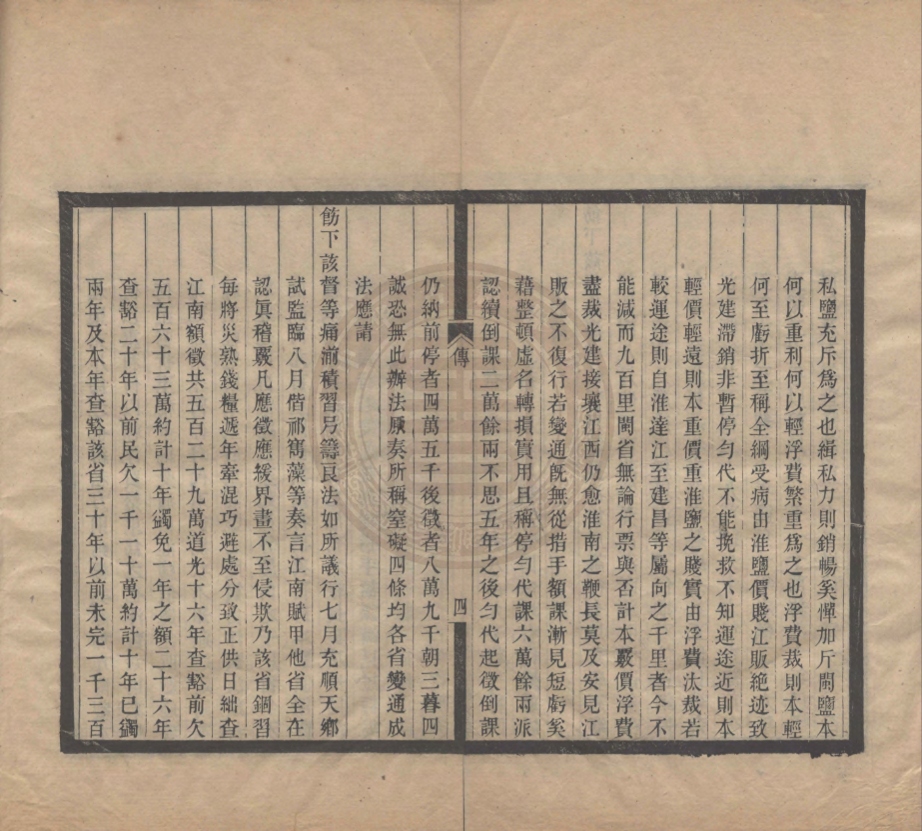 私鹽充斥爲之也緝私力則銷暢奚憚加斤閩鹽本
何以重利何以輕浮費繁重爲之也浮費裁則本輕
何至虧折至稱全綱受病由淮鹽價賤江販絶迹致
光建滯銷非暫停勻代不能挽救不知運途近則本
輕價輕遠則本重價重淮鹽之賤實由浮費汰裁若
較運途則自淮達江至建昌等屬向之千里者今不
能減而九百里閩省無論行票與否計本覈價浮費
盡裁光建接壤江西仍愈淮南之鞭長莫及安見江
販之不復行若變通旣無從措手額課漸見短虧奚
藉整頓虛名轉損實用且稱停勻代課六萬餘兩派
認續倒課二萬餘兩不思五年之後勻代起徵倒課
傳
四
仍納前停者四萬五千後徵者八萬九千朝三暮四
誠恐無此辦法原奏所稱窒礙四條均各省變通成
法應請
飭下該督等痛湔積習另籌良法如所議行七月充順天鄉
試監臨八月偕祁寯藻等奏言江南賦甲他省全在
認眞稽覈凡應徵應緩界畫不至侵欺乃該省錮習
每將災熟錢糧遞年牽混巧避處分致正供日絀查
江南額徵共五百二十九萬道光十六年查豁前欠
五百六十三萬約計十年蠲免一年之額二十六年
查豁二十年以前民欠一千一十萬約計十年已蠲
兩年及本年查豁該省三十年以前未完一千三百